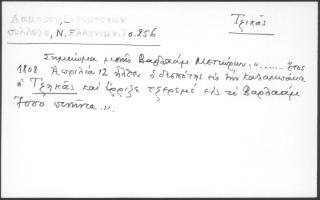 Λάμπρου, Ἐνθυμήσεων
συλλογή, Ν. Ἑλληνομν. 7ο.856
Τζικᾶς
Σημείωμα μονῆς Βαρλαάμ Μετεώρων, „...... ἔτος
1808 Ἀπριλίᾳ 12 ἦλθεν ὁ δεσπότης εἰς τὴν καλαμπάκα
ὁ Τζηκᾶς καὶ ἔρριξε τζερεμέ εἰς τὸ Βαρλαάμ
".